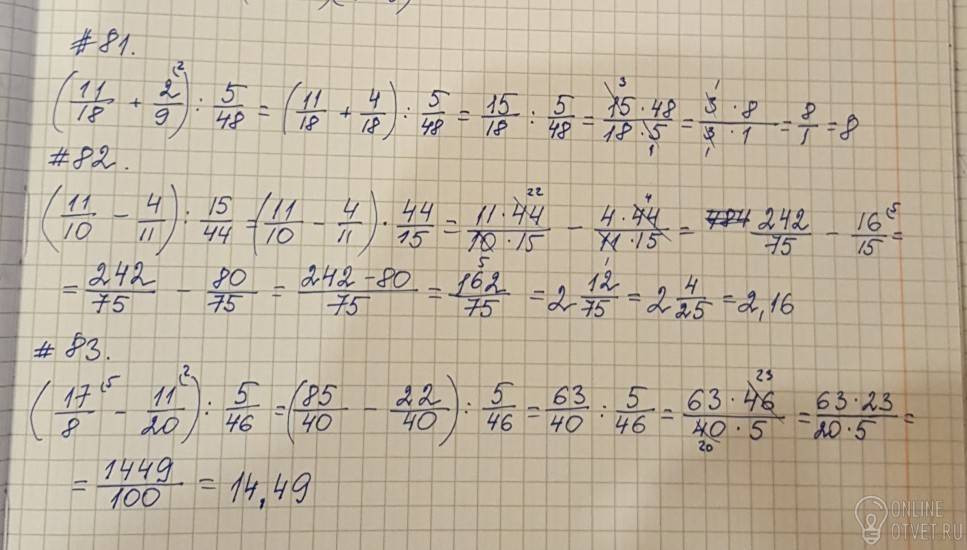 #81.
(11/18 + 2/9⁽²) : 5/48 = (11/18 + 4/18) : 5/48 = 15/18 : 5/48 = 15³·48/18·5₁ = 3¹·8/3₁·1 = 8/1 = 8
#82.
(11/10 - 4/11) : 15/44 = (11/10 - 4/11) · 44/15 = 11·44²²/10₅·15 - 4·44⁴/11₁·15 = 484 242/75 - 16/15⁽⁵ =
= 242/75 - 80/75 = 242-80/75 = 162/75 = 2 12/75 = 2 4/25 = 2,16
#83.
(17/8⁽⁵ - 11/20⁽²) : 5/46 = (85/40 - 22/40) : 5/46 = 63/40 : 5/46 = 63·46²³/40₂₀·5 = 63·23/20·5 =
= 1449/100 = 14,49
ONLINE
OTVET.RU